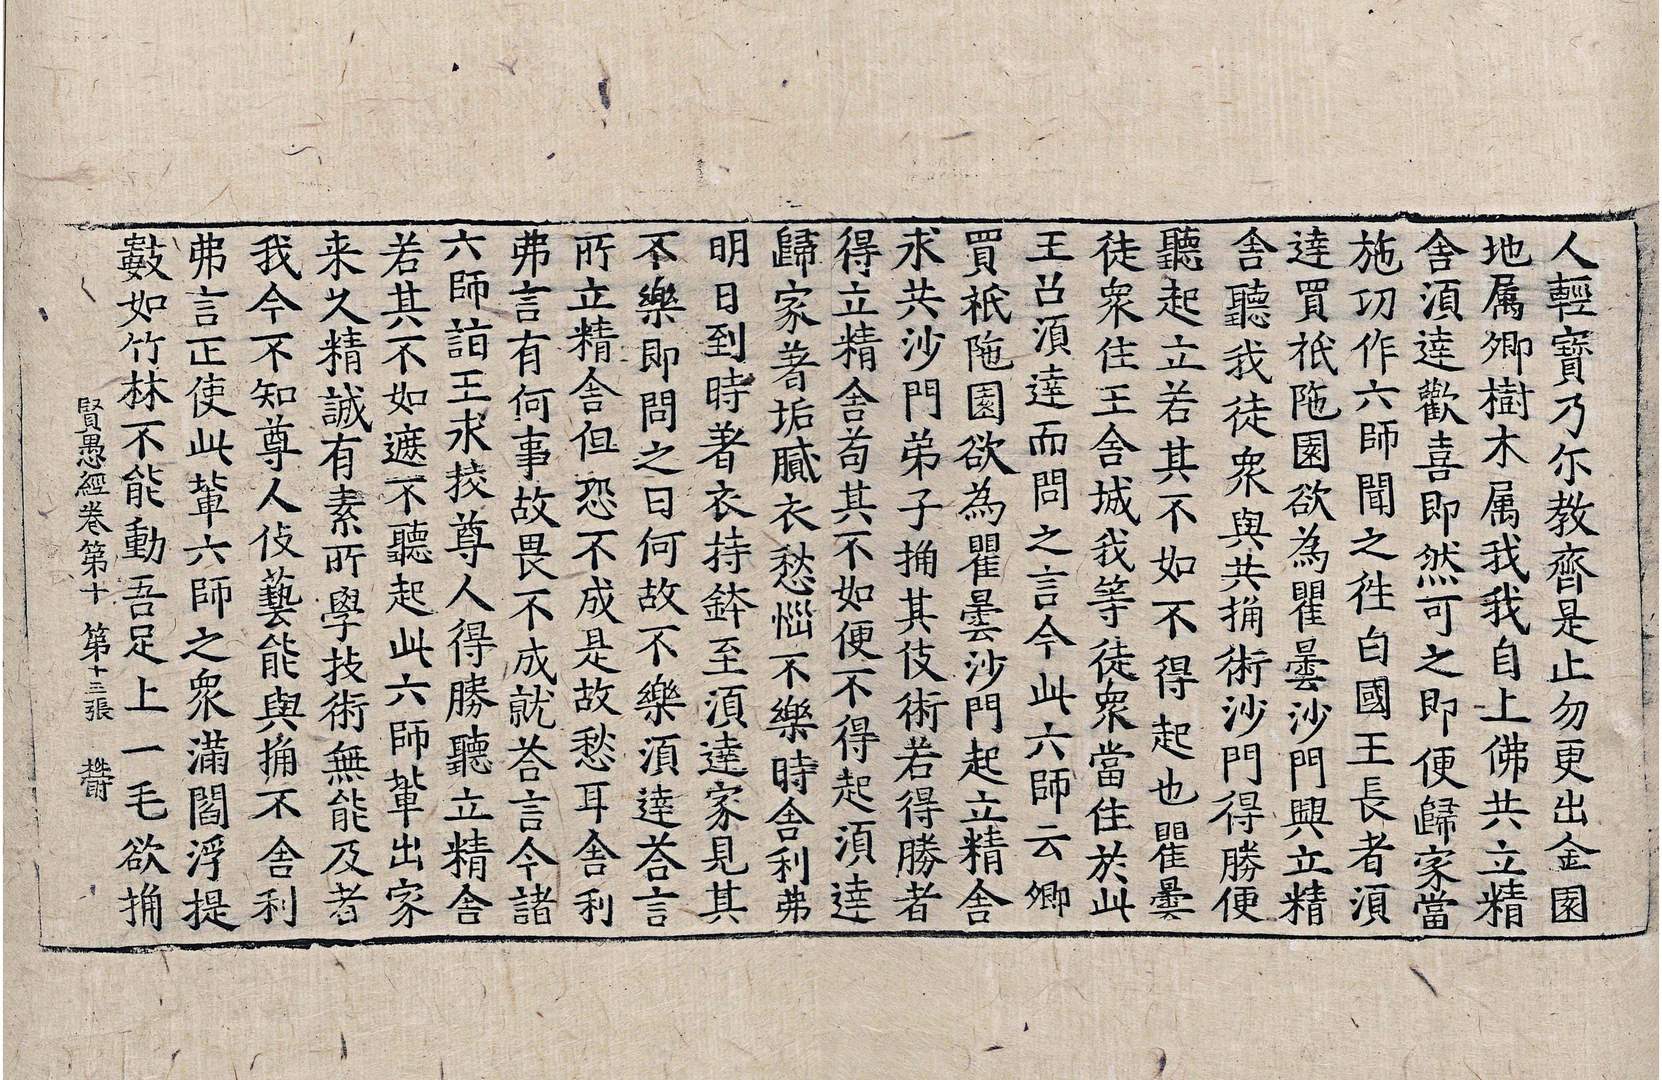 人輕寳乃尓教齊是止勿更出金園
地属卿樹木属我我自上佛共立精
舎湏達歡喜即然可之即便歸家當
施功作六師聞之徃白國王長者湏
達買祇陁園欲為瞿曇沙門興立精
舎聽我徒衆與共捔術沙門得勝便
聽起立若其不如不得起也瞿曇
徒衆住王舎城我等徒衆當住於此
王召湏達而問之言今此六師云卿
買祇陁園欲為瞿曇沙門起立精舎
求共沙門弟子捔其伎術若得勝者
得立精舎苟其不如便不得起湏達
歸家著垢膩衣愁惱不樂時舎利弗
明日到時著衣持鉢至湏達家見其
不樂即問之曰何故不樂湏達荅言
所立精舎但恐不成是故愁耳舎利
弗言有何事故畏不成就荅言今諸
六師詣王求挍尊人得勝聽立精舎
若其不如遮不聽起此六師軰出家
来久精誠有素所學技術無能及者
我今不知尊人伎藝能與捔不舎利
弗言正使此軰六師之衆滿閻浮提
數如竹林不能動吾足上一毛欲捔
賢愚經卷第十 第十三張